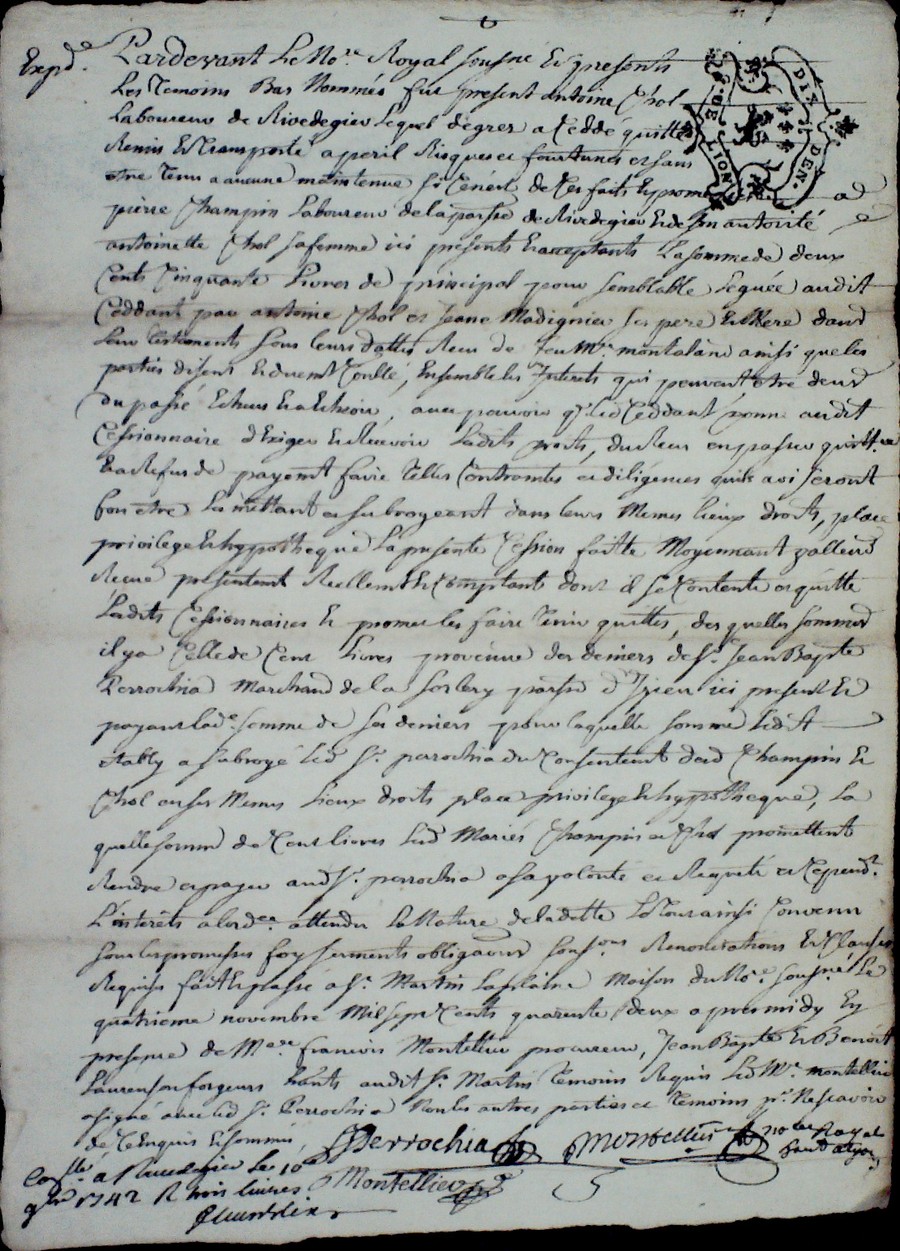 Exp.de
Pardevant Le No.re Royal sousné Et presents
Les Temoins Bas Nommés fut present antoine Chol
Laboureur de Rivedegier Lequel degrez a Ceddé quitté
Remis Et Transporté a peril Risques et fourtunes et sans
etre tenu a aucune maintenue si Cenest de Ces faits Et promesses a
pierre Champin Laboureur dela parsse de Rivedegier Et de son autorité
antoinette Chol sa femme ici presents Et acceptants La somme de deux
Cents Cinquante Livres de principal pour semblable Leguée audit
Ceddant par antoine Chol et Jeane Madignier ses pere Et Mere dans
Leur testaments sous leurs dattes Receu de feu M.re montaland ainsi que les
parties disent Ensemble les Interets qui peuvent etre deubs
du passé Echeus Et a Echeoir, avec pouvoir q.l led Ceddant donne audit
Cessionnaire d'Exiger Et Recevoir Ladits droits, du Receu en passer quitt.ce
Et a Refus de payemt faire telles Contraintes et diligences quils aviseront
bon etre Les mettant et subrogeant dans leurs Memes lieux droits, place
privilege Et hypotheque La presente Cession faitte Moyennant valleur
Receue presentemt Reellemt Et Comptant dont il se Contente et quitte
Lesdits Cessionnaires Et promet les faire tenir quittes, des quelles sommes
il y a Celle de Cent Livres provenue des deniers de S.r Jean Bapte
Perrochia Marchand de la sorlery parsse d'Izieu ici present Et
payant lad.e somme de ses deniers pour laquelle somme Ledit
Etably a subrogé Led S.r perrochia du Consentemt desd Champin Et
Chol en ses Memes Lieux droits place privilege Et hypotheque, La
quelle somme de Cent livres Lesd Mariés Champin et Chol promettent
Rendre et payer aud S.r perrochia a sa volonté et Requeté et Cepend.t
L'interets a lord.re attendu La Nature de la dette Le Tout ainsi Convenu
sous les promesses foy serments obligaons sous.ons Renonciations Et Clauses
Requises fait Et passé a S.t Martin La plaine Maison du No.re sousné Le
quatrieme novembre Mil sept Cents quarente deux apres midy En
presence de M.re francois Montellier procureur, Jean Bapte Et Benoit
Laurenson forgeurs hants audit S.t Martin temoins Requis Led M.re montellier
a signé avec led S.r Perrochia Non les autres parties et temoins p.r Ne scavoir
de Ce Enquis Et sommés,
JB Perrochia
Montellier no.re Royal
Montellier
Con.llé a Rivedegier Le 10e
9bre 1742 R trois livres
G. DE LION.
DIX DEN.